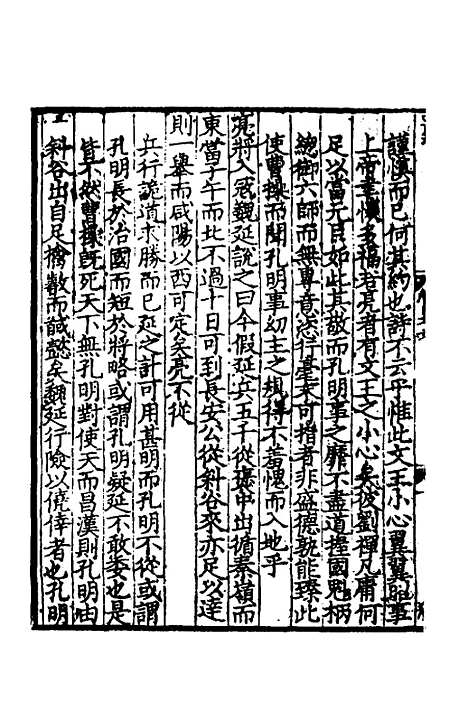 謹慎而已何其約也詩不云乎惟此文王小心翼翼昭事
上帝聿懷多福若亮者有文王之小心矣彼劉禪凡庸何
足以當元良如此其敬而孔明事之靡不盡道握國魁柄
總御六師而無專意法行臺末可指者非盛德孰能臻此
使曹操而聞孔明事幼主之規得不羞愧而入地乎
亮將入冦魏延說之曰今假延兵五千從褒中出循秦嶺而
東當子午而北不過十日可到長安公從斜谷來亦足以達
則一舉而咸陽以西可定矣亮不從
兵行詭道求勝而已延之計可用甚明而孔明不從或謂
孔明長於治國而短於將略或謂孔明疑延不敢委也是
皆不然曹操既死天下無孔明對使天而昌漢則孔明由
斜谷出自足擒敵而馘懿矣魏延行險以僥倖者也孔明